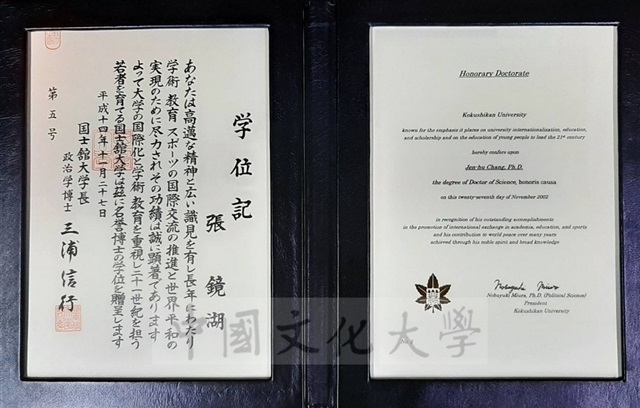 学位記
張鏡湖
あなたは高邁な精神と広い識見を有し長年にわたり
学術 教育 スポーツの国際交流の推進と世界平和の
実現のために尽力されその功績は誠に顕著であります
よって大学の国際化と学術 教育を重視し二十一世紀を担う
若者を育てる国士舘大学は茲に名誉博士の学位を贈呈します
平成十四年十一月二十七日
国士舘大学長
政治学博士 三浦信行
第五号
Honorary Doctorate
Kokushikan University
known for the emphasis it places on university internationalization, education,
and scholarship and on the education of young people to lead the 21st century
hereby confers upon
Jen-hu Chang, Ph.D.
the degree of Doctor of Science, honoris causa
on this twenty-seventh day of November 2002
in recognition of his outstanding accomplishments
in the promotion of international exchange in academia, education, and sports
and his contribution to world peace over many years
achieved through his noble spirit and broad knowledge
Nobuyuki Miura
Nobuyuki Miura, Ph.D. (Political Science)
President
Kokushikan University
中國文化大學